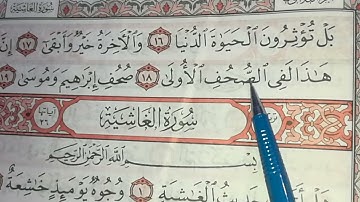 سُورَةُ الْغَاشِيَةِ
بَلْ تُؤْثِرُونَ الْحَيَوٰةَ الدُّنْيَا ١٦ وَالْآخِرَةُ خَيْرٌ وَأَبْقَىٰ ١٧ إِنَّ
هَٰذَا لَفِي الصُّحُفِ الْأُولَىٰ ١٨ صُحُفِ إِبْرَاهِيمَ وَمُوسَىٰ ١٩
سُورَةُ الْغَاشِيَةِ
آياتها ٢٦
بِسْمِ اللَّهِ الرَّحْمَٰنِ الرَّحِيمِ
حَدِيثُ الْغَاشِيَةِ ١ وُجُوهٌ يَوْمَئِذٍ خَاشِعَةٌ